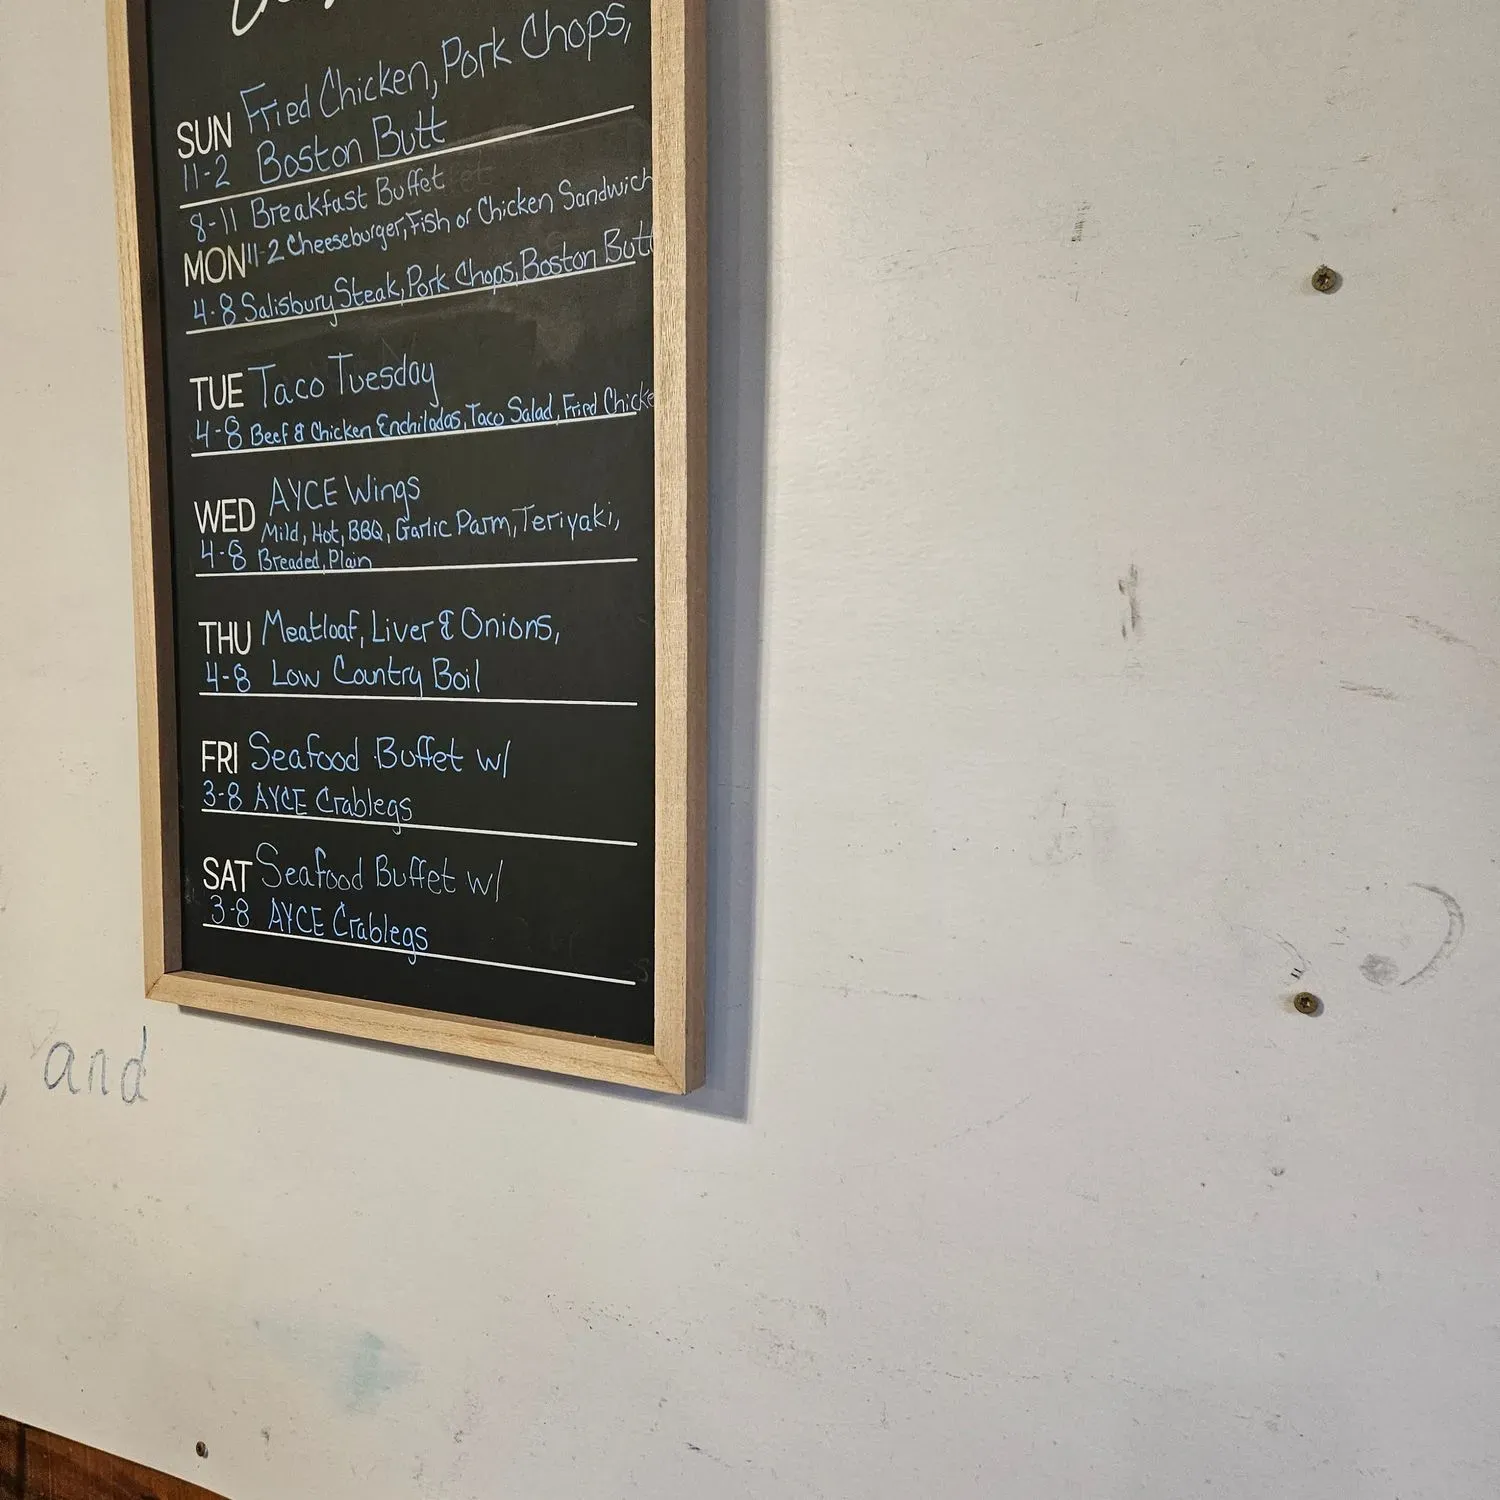 SUN Fried Chicken, Pork Chops,
11-2 Boston Butt
8-11 Breakfast Buffet
MON 11-2 Cheeseburger, Fish or Chicken Sandwich
4-8 Salisbury Steak, Pork Chops, Boston Butt
TUE Taco Tuesday
4-8 Beef & Chicken Enchiladas, Taco Salad, Fried Chicke
WED AYCE Wings
Mild, Hot, BBQ, Garlic Parm, Teriyaki,
4-8 Breaded, Plain
THU Meatloaf, Liver & Onions,
4-8 Low Country Boil
FRI Seafood Buffet w/
3-8 AYCE Crablegs
SAT Seafood Buffet w/
3-8 AYCE Crablegs
, and